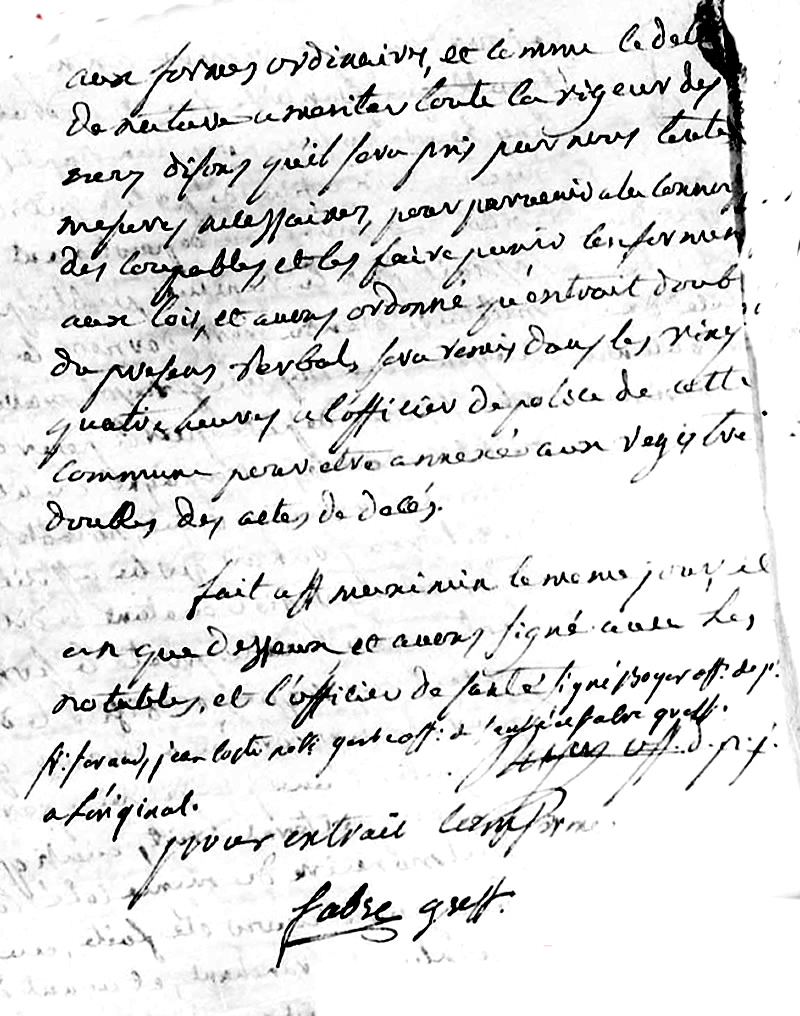 aux formes ordinaires, et comme le del
de nature a meriter toute la rigeur des
disons qu'il sera pris par nous toute
mesures necessaires, pour parvenir a la connoi
des coupables, et les faire punir conformem
aux lois, et avons ordonné qu'extrait doub
du presens verbal, sera remis dans les ving
quatre heures a l'officier de police de cette
commune pour etre annexé aux registre
doubles des actes de decés.
fait a st maximin le meme jour, et
an que dessus et avons signé avec les
notables, et l'officier de santé signé Boyer off. de p.
feraud, jean coste off. de santé et fabre greff.
a l'original.
pour extrait conforme
fabre greff.